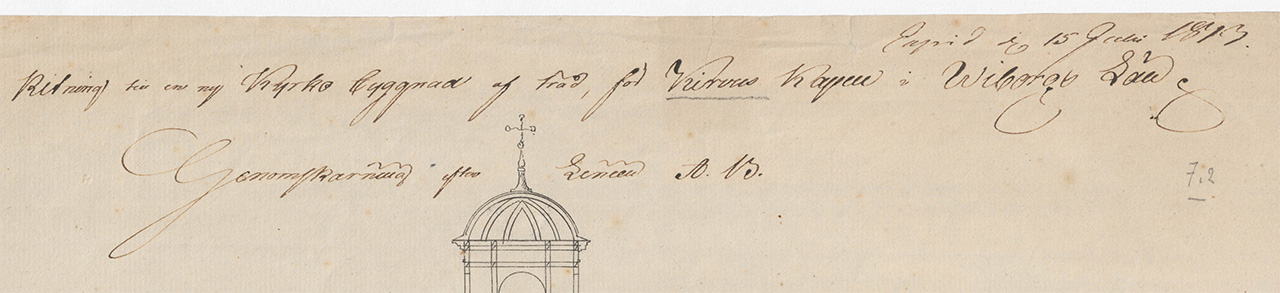 Expid d 15 Julii 1813.
Ritning till en ny Kyrko Byggnad af träd, för Kivenus Kapell i Wiborgs Län
Genomskärning efter Linien A. B.
7.2